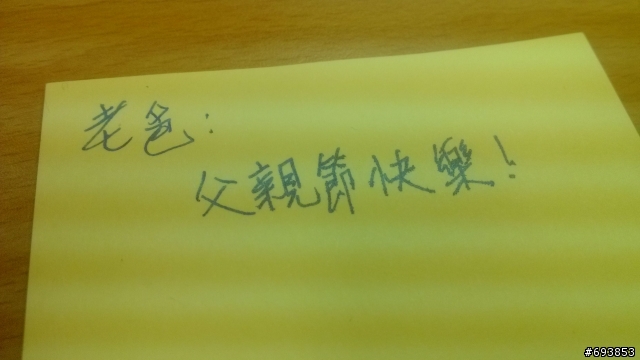 老爸:
父親節快樂!
#693853